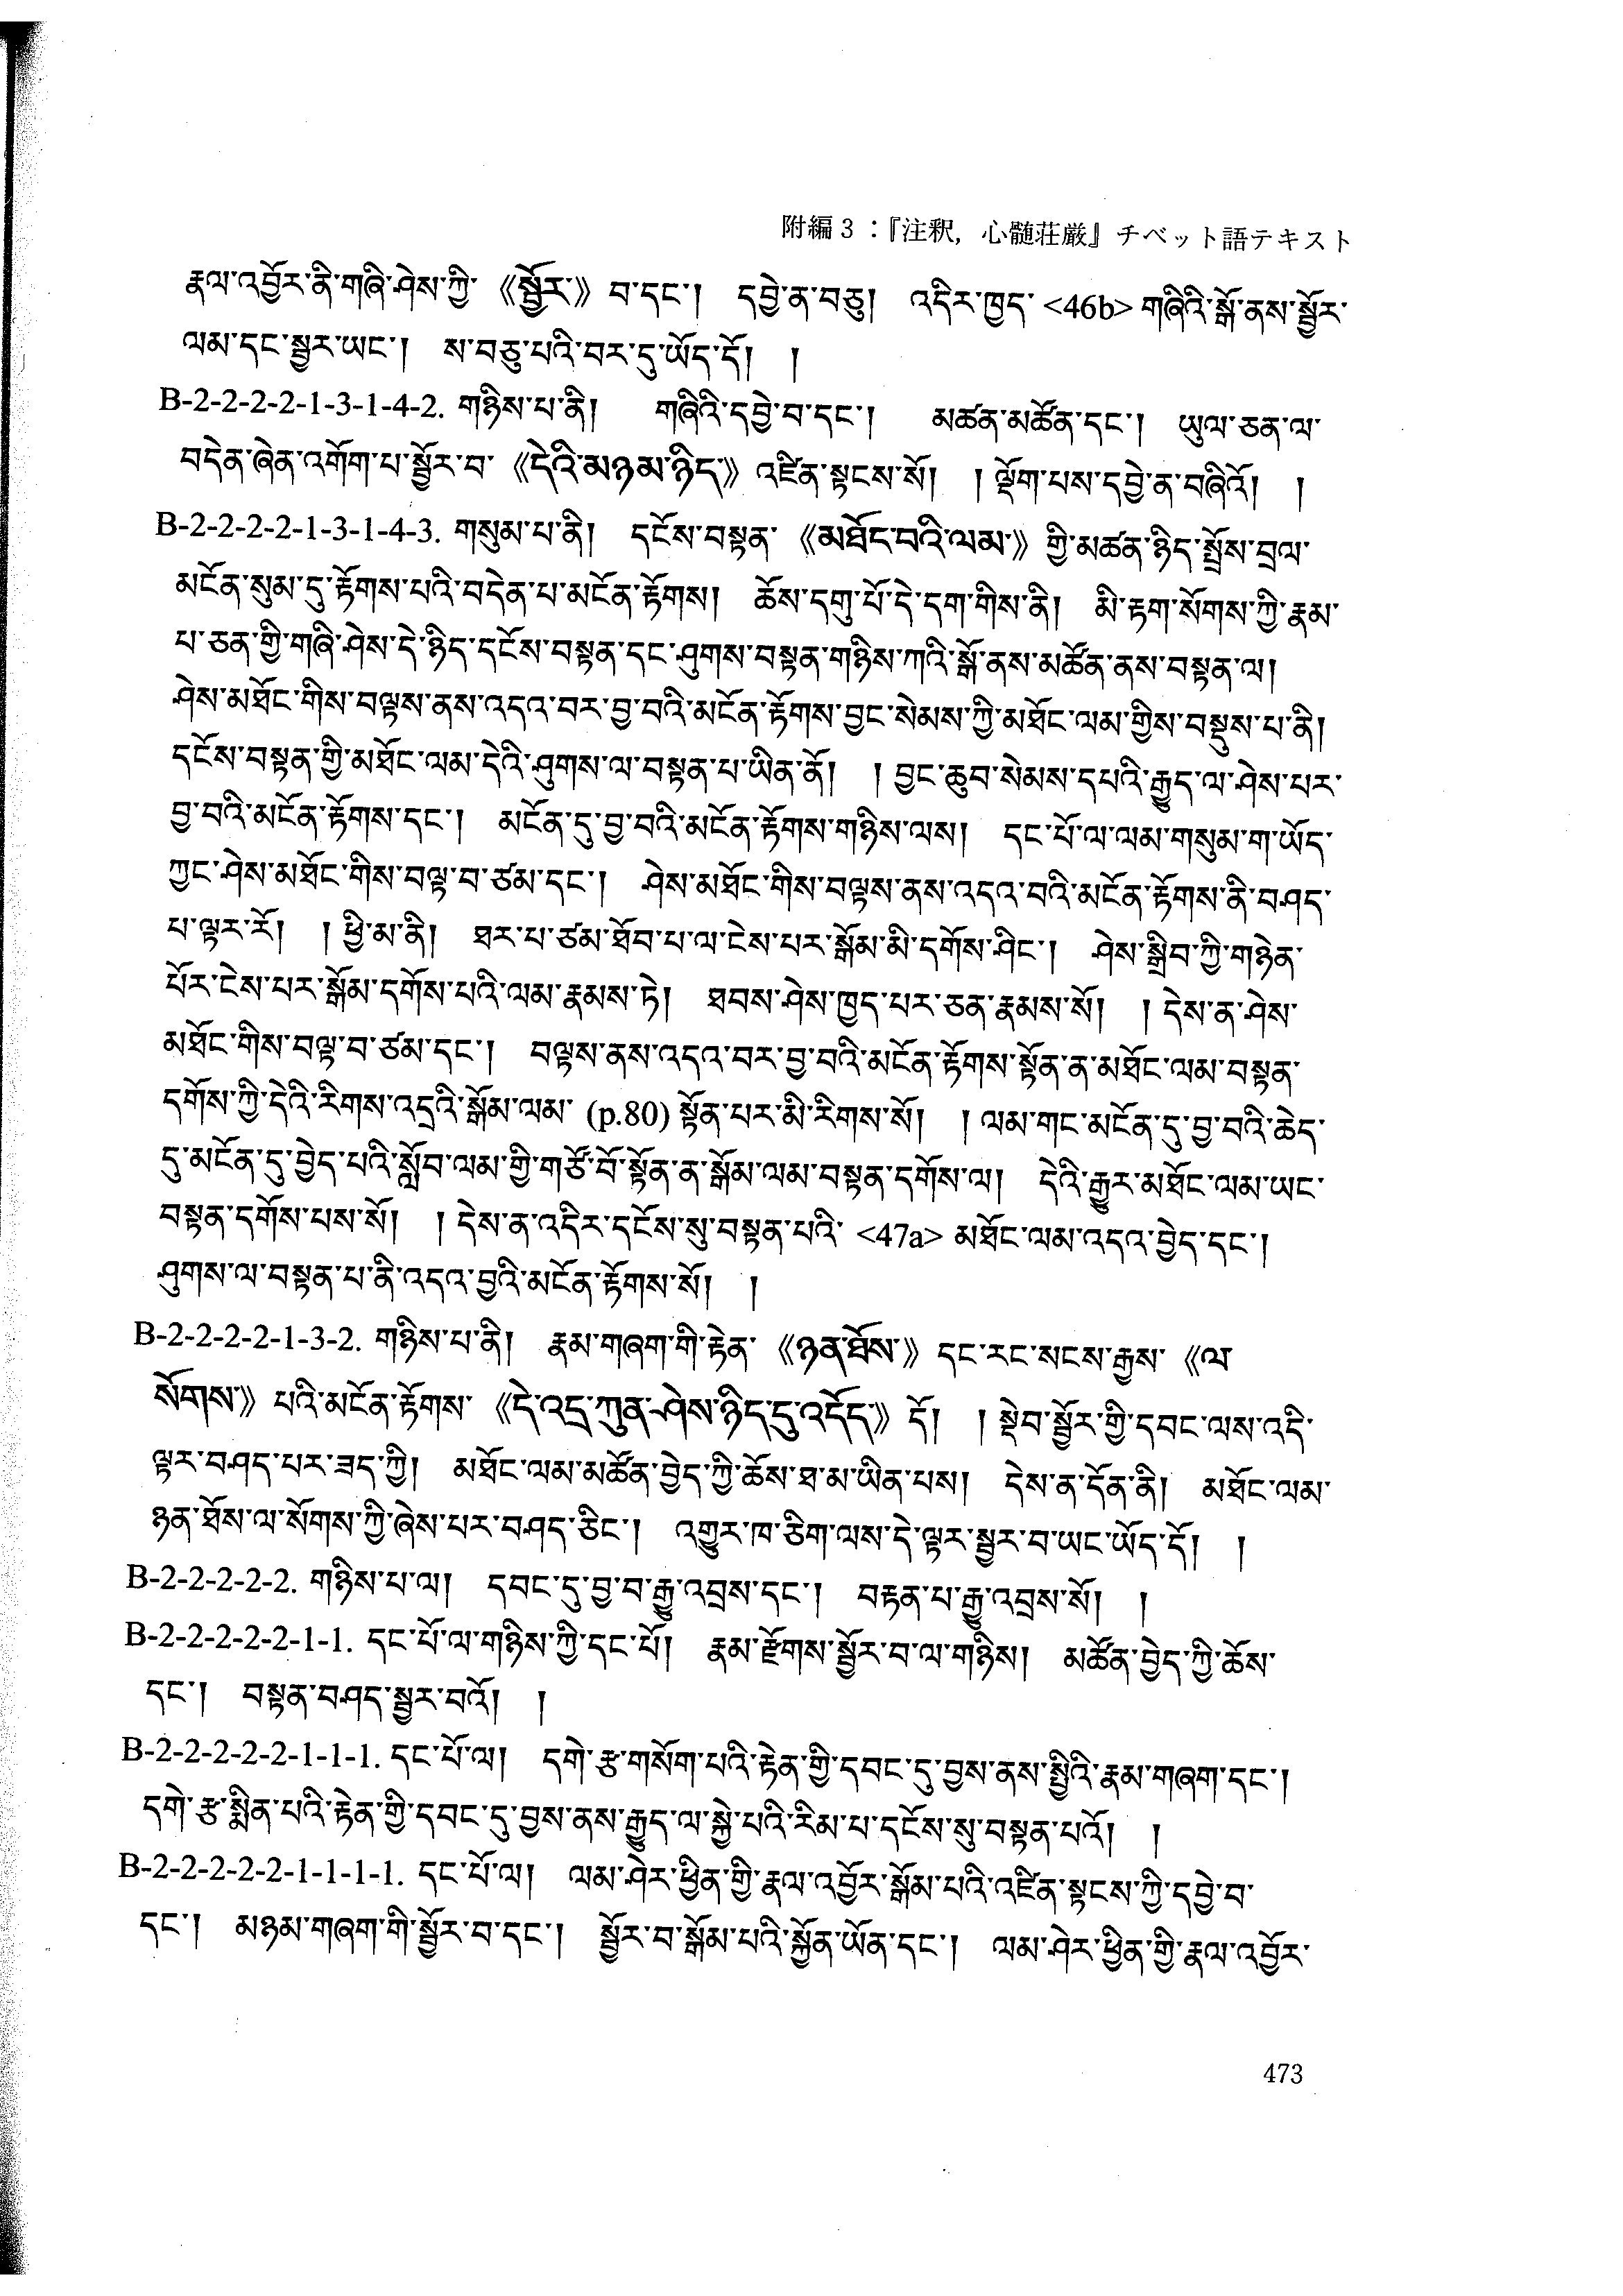 附編 3 ：『注釈，心髄荘厳』チベット語テキスト
རྣལ་འབྱོར་ནི་གཞི་ཤེས་ཀྱི་ 《སྦྱོར་》 བ་དང་། དབྱེ་ན་བཅུ། འདིར་ཁྱད་ <46b> གཞིའི་སྒོ་ནས་སྦྱོར་
ལམ་དང་སྦྱར་ཡང་། ས་བཅུ་པའི་བར་དུ་ཡོད་དོ། །
B-2-2-2-2-1-3-1-4-2. གཉིས་པ་ནི། གཞིའི་དབྱེ་བ་དང་། མཚན་མཚོན་དང་། ཡུལ་ཅན་ལ་
བདེན་ཞེན་འགོག་པ་སྦྱོར་བ་ 《དེའི་མཉམ་ཉིད་》 འཛིན་སྟངས་སོ། ། ལྡོག་པས་དབྱེ་ན་བཞིའོ། །
B-2-2-2-2-1-3-1-4-3. གསུམ་པ་ནི། དངོས་བསྟན་ 《མཐོང་བའི་ལམ་》 གྱི་མཚན་ཉིད་སྤྲོས་བྲལ་
མངོན་སུམ་དུ་རྟོགས་པའི་བདེན་པ་མངོན་རྟོགས། ཆོས་དགུ་པོ་དེ་དག་གིས་ནི། མི་རྟག་སོགས་ཀྱི་རྣམ་
པ་ཅན་གྱི་གཞི་ཤེས་དེ་ཉིད་དངོས་བསྟན་དང་ཤུགས་བསྟན་གཉིས་ཀའི་སྒོ་ནས་མཚོན་ནས་བསྟན་ལ།
ཤེས་མཐོང་གིས་བལྟས་ནས་འདའ་བར་བྱ་བའི་མངོན་རྟོགས་བྱང་སེམས་ཀྱི་མཐོང་ལམ་གྱིས་བསྡུས་པ་ནི།
དངོས་བསྟན་གྱི་མཐོང་ལམ་དེའི་ཤུགས་ལ་བསྟན་པ་ཡིན་ནོ། ། བྱང་ཆུབ་སེམས་དཔའི་རྒྱུད་ལ་ཤེས་པར་
བྱ་བའི་མངོན་རྟོགས་དང་། མངོན་དུ་བྱ་བའི་མངོན་རྟོགས་གཉིས་ལས། དང་པོ་ལ་ལམ་གསུམ་ག་ཡོད་
ཀྱང་ཤེས་མཐོང་གིས་བལྟ་བ་ཙམ་དང་། ཤེས་མཐོང་གིས་བལྟས་ནས་འདའ་བའི་མངོན་རྟོགས་ནི་བཤད་
པ་ལྟར་རོ། ། ཕྱི་མ་ནི། ཐར་པ་ཙམ་ཐོབ་པ་ལ་ངེས་པར་སྒོམ་མི་དགོས་ཤིང་། ཤེས་སྒྲིབ་ཀྱི་གཉེན་
པོར་ངེས་པར་སྒོམ་དགོས་པའི་ལམ་རྣམས་ཏེ། ཐབས་ཤེས་ཁྱད་པར་ཅན་རྣམས་སོ། ། དེས་ན་ཤེས་
མཐོང་གིས་བལྟ་བ་ཙམ་དང་། བལྟས་ནས་འདའ་བར་བྱ་བའི་མངོན་རྟོགས་སྟོན་ན་མཐོང་ལམ་བསྟན་
དགོས་ཀྱི་དེའི་རིགས་འདྲའི་སྒོམ་ལམ་ (p.80) སྟོན་པར་མི་རིགས་སོ། ། ལམ་གང་མངོན་དུ་བྱ་བའི་ཆེད་
དུ་མངོན་དུ་བྱེད་པའི་སློབ་ལམ་གྱི་གཙོ་བོ་སྟོན་ན་སྒོམ་ལམ་བསྟན་དགོས་ལ། དེའི་རྒྱུར་མཐོང་ལམ་ཡང་
བསྟན་དགོས་པས་སོ། ། དེས་ན་འདིར་དངོས་སུ་བསྟན་པའི་ <47a> མཐོང་ལམ་འདའ་བྱེད་དང་།
ཤུགས་ལ་བསྟན་པ་ནི་འདའ་བྱའི་མངོན་རྟོགས་སོ། །
B-2-2-2-2-1-3-2. གཉིས་པ་ནི། རྣམ་གཞག་གི་རྟེན་ 《ཉན་ཐོས་》 དང་རང་སངས་རྒྱས་ 《ལ་
སོགས་》 པའི་མངོན་རྟོགས་ 《དེ་འདྲ་ཀུན་ཤེས་ཉིད་དུ་འདོད་》 དོ། ། སྡེབ་སྦྱོར་གྱི་དབང་ལས་འདི་
ལྟར་བཤད་པར་ཟད་ཀྱི། མཐོང་ལམ་མཚོན་བྱེད་ཀྱི་ཆོས་ཐ་མ་ཡིན་པས། དེས་ན་དོན་ནི། མཐོང་ལམ་
ཉན་ཐོས་ལ་སོགས་ཀྱི་ཞེས་པར་བཤད་ཅིང་། འགྱུར་ཁ་ཅིག་ལས་དེ་ལྟར་སྦྱར་བ་ཡང་ཡོད་དོ། །
B-2-2-2-2-2. གཉིས་པ་ལ། དབང་དུ་བྱ་བ་རྒྱུ་འབྲས་དང་། བརྟན་པ་རྒྱུ་འབྲས་སོ། །
B-2-2-2-2-2-1-1. དང་པོ་ལ་གཉིས་ཀྱི་དང་པོ། རྣམ་རྫོགས་སྦྱོར་བ་ལ་གཉིས། མཚོན་བྱེད་ཀྱི་ཆོས་
དང་། བསྟན་བཤད་སྦྱར་བའོ། །
B-2-2-2-2-2-1-1-1. དང་པོ་ལ། དགེ་རྩ་གསོག་པའི་རྟེན་གྱི་དབང་དུ་བྱས་ནས་སྤྱིའི་རྣམ་གཞག་དང་།
དགེ་རྩ་སྨིན་པའི་རྟེན་གྱི་དབང་དུ་བྱས་ནས་རྒྱུད་ལ་སྐྱེ་པའི་རིམ་པ་དངོས་སུ་བསྟན་པའོ། །
B-2-2-2-2-2-1-1-1-1. དང་པོ་ལ། ལམ་ཤེར་ཕྱིན་གྱི་རྣལ་འབྱོར་སྒོམ་པའི་འཛིན་སྟངས་ཀྱི་དབྱེ་བ་
དང་། མཉམ་གཞག་གི་སྦྱོར་བ་དང་། སྦྱོར་བ་སྒོམ་པའི་སྐྱོན་ཡོན་དང་། ལམ་ཤེར་ཕྱིན་གྱི་རྣལ་འབྱོར་
473